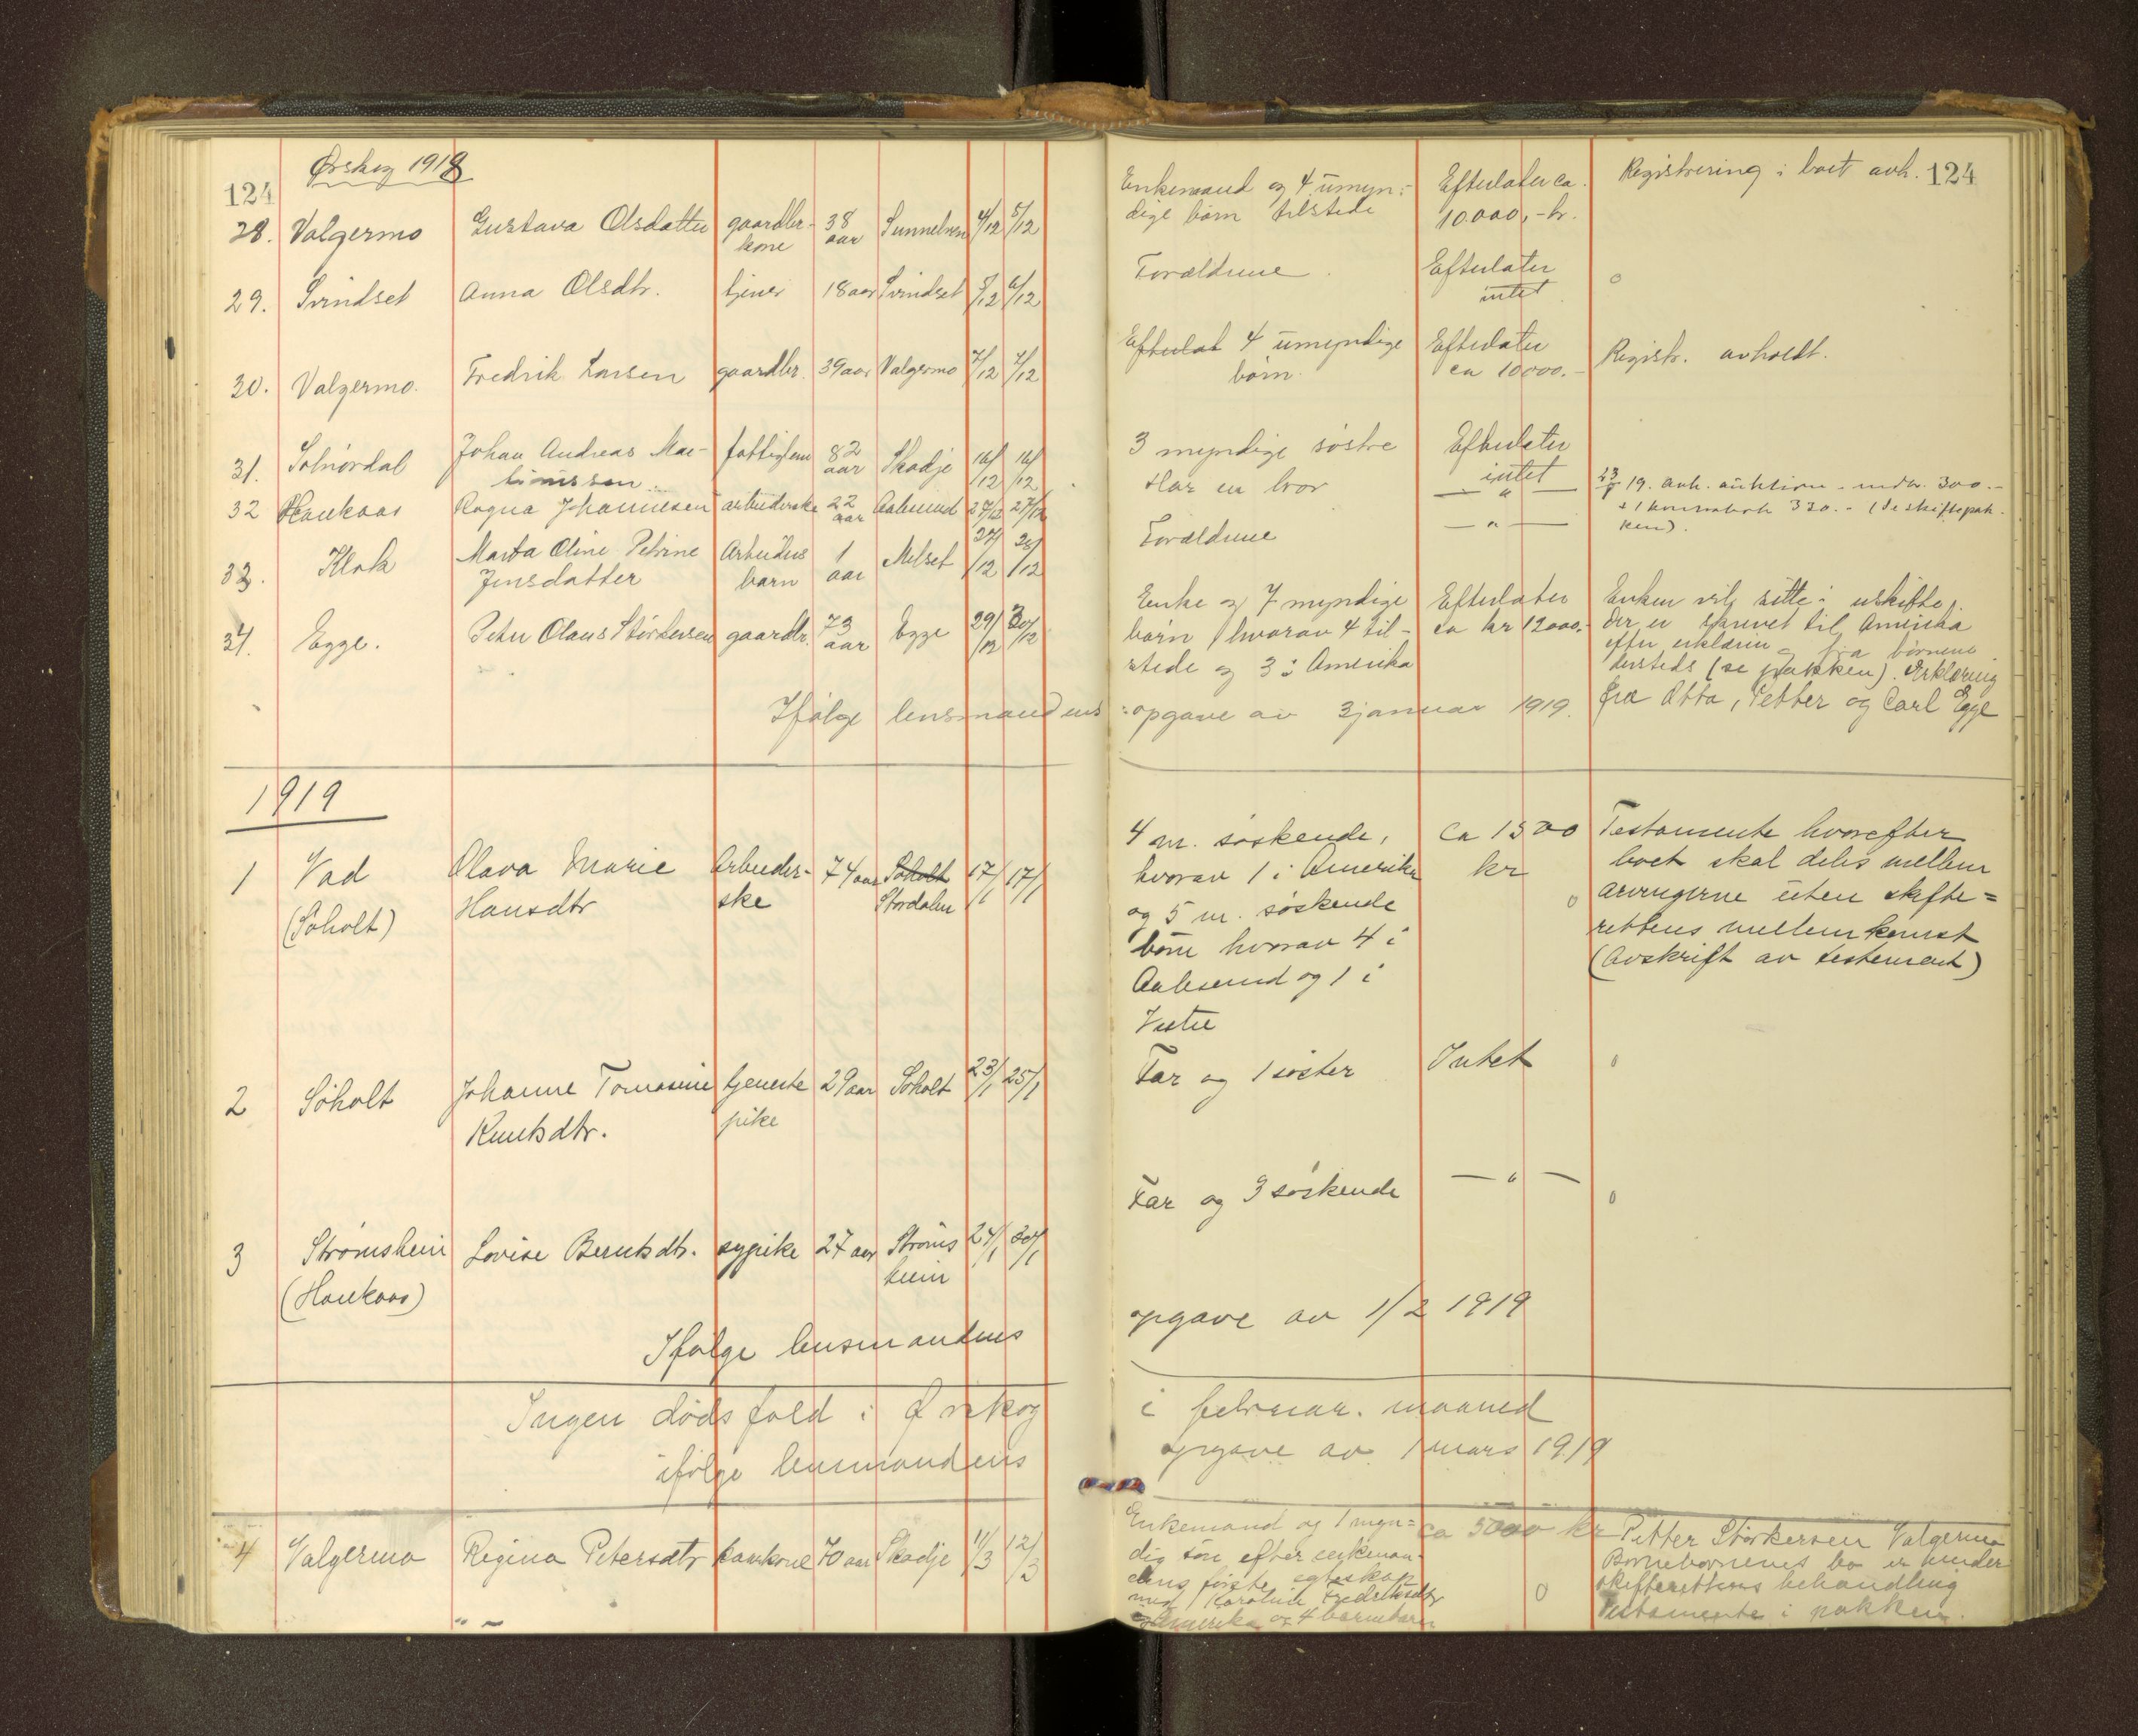 124
Ørskog 1918
28. Valgermo Gustava Olsdatter gaardbr- 38 Sunnelven 4/12 5/12
kone aar
29. Svindset Anna Olsdtr. tjener 18 aar Svindset 5/12 6/12
30. Valgermo. Fredrik Larsen gaardbr. 39 aar Valgermo 7/12 7/12
31. Solnördal Johan Andreas Mar- fattiglem 82 Skodje 16/12 16/12
tinussen aar
32 Haukaas Ragna Johannesen arbeiderske 22 Aalesund 27/12 27/12
aar
33. Klok Marta Oline Petrine Arbeiders 1 Melset 27/12 28/12
Jensdatter barn aar
34. Egge. Peter Olaus Störkersen gaardbr. 73 Egge 29/12 30/12
aar
Ifölge lensmandens
1919
1 Vad Olava Marie Arbeider- 74 aar Söholt 17/1 17/1
(Söholt) Hansdtr ske Stordalen
2 Söholt Johanne Tomasine tjeneste 29 aar Söholt 23/1 25/1
Knutsdtr. pike
3 Strömsheim Lovise Berntsdtr. sypike 27 aar Ströms 24/1 30/1
(Haukaas) heim
Ifölge lensmandens
Ingen dödsfald i Ørskog
ifölge lensmandens
4 Valgermo Regina Petersdtr kaarkone 70 aar Skodje 11/3 12/3
" -
124
Enkemand og 4 umyn- Efterlater ca. Registrering i boet avh.
dige börn tilstede 10.000,- kr.
Forældrene. Efterlater o
intet
Efterlat 4 umyndige Efterlater Registr. avholdt.
börn. ca 10000.-
3 myndige söstre Efterlater
intet
Har en bror — " — 19. avh. auktion. 300.-
330.- (se skiftepak-
Forældrene — " — ken).
Enke og 7 myndige Efterlater Enken vil sitte i uskifte.
börn hvorav 4 til- ca kr 12000.- Der er skrevet til Amerika
stede og 3 i Amerika efter erklæring fra börnene
dersteds (se pakken). Erklæring
opgave av 3 januar 1919. fra Otta, Petter og Carl Egge
4 m. söskende, ca 1500 Testamente hvorefter
hvorav 1 i Amerika kr boet skal deles mellem
og 5 m. söskende o arvingerne uten skifte=
börn hvorav 4 i rettens mellemkomst
Aalesund og 1 i (Avskrift av testement)
Vestre
Far og 1 söster Intet o
Far og 3 söskende — " — o
opgave av 1/2 1919
i februar. maaned
opgave av 1 mars 1919
Enkemand og 1 myn= ca 5000 kr Petter Störkersen Valgermo
dig sön efter enkeman- Barnebarnenes bo er under
dens förste egteskap skifterettens behandling
med Karoline Fredriksdtr o Testamente i pakken.
Amerika og 4 barnebarn